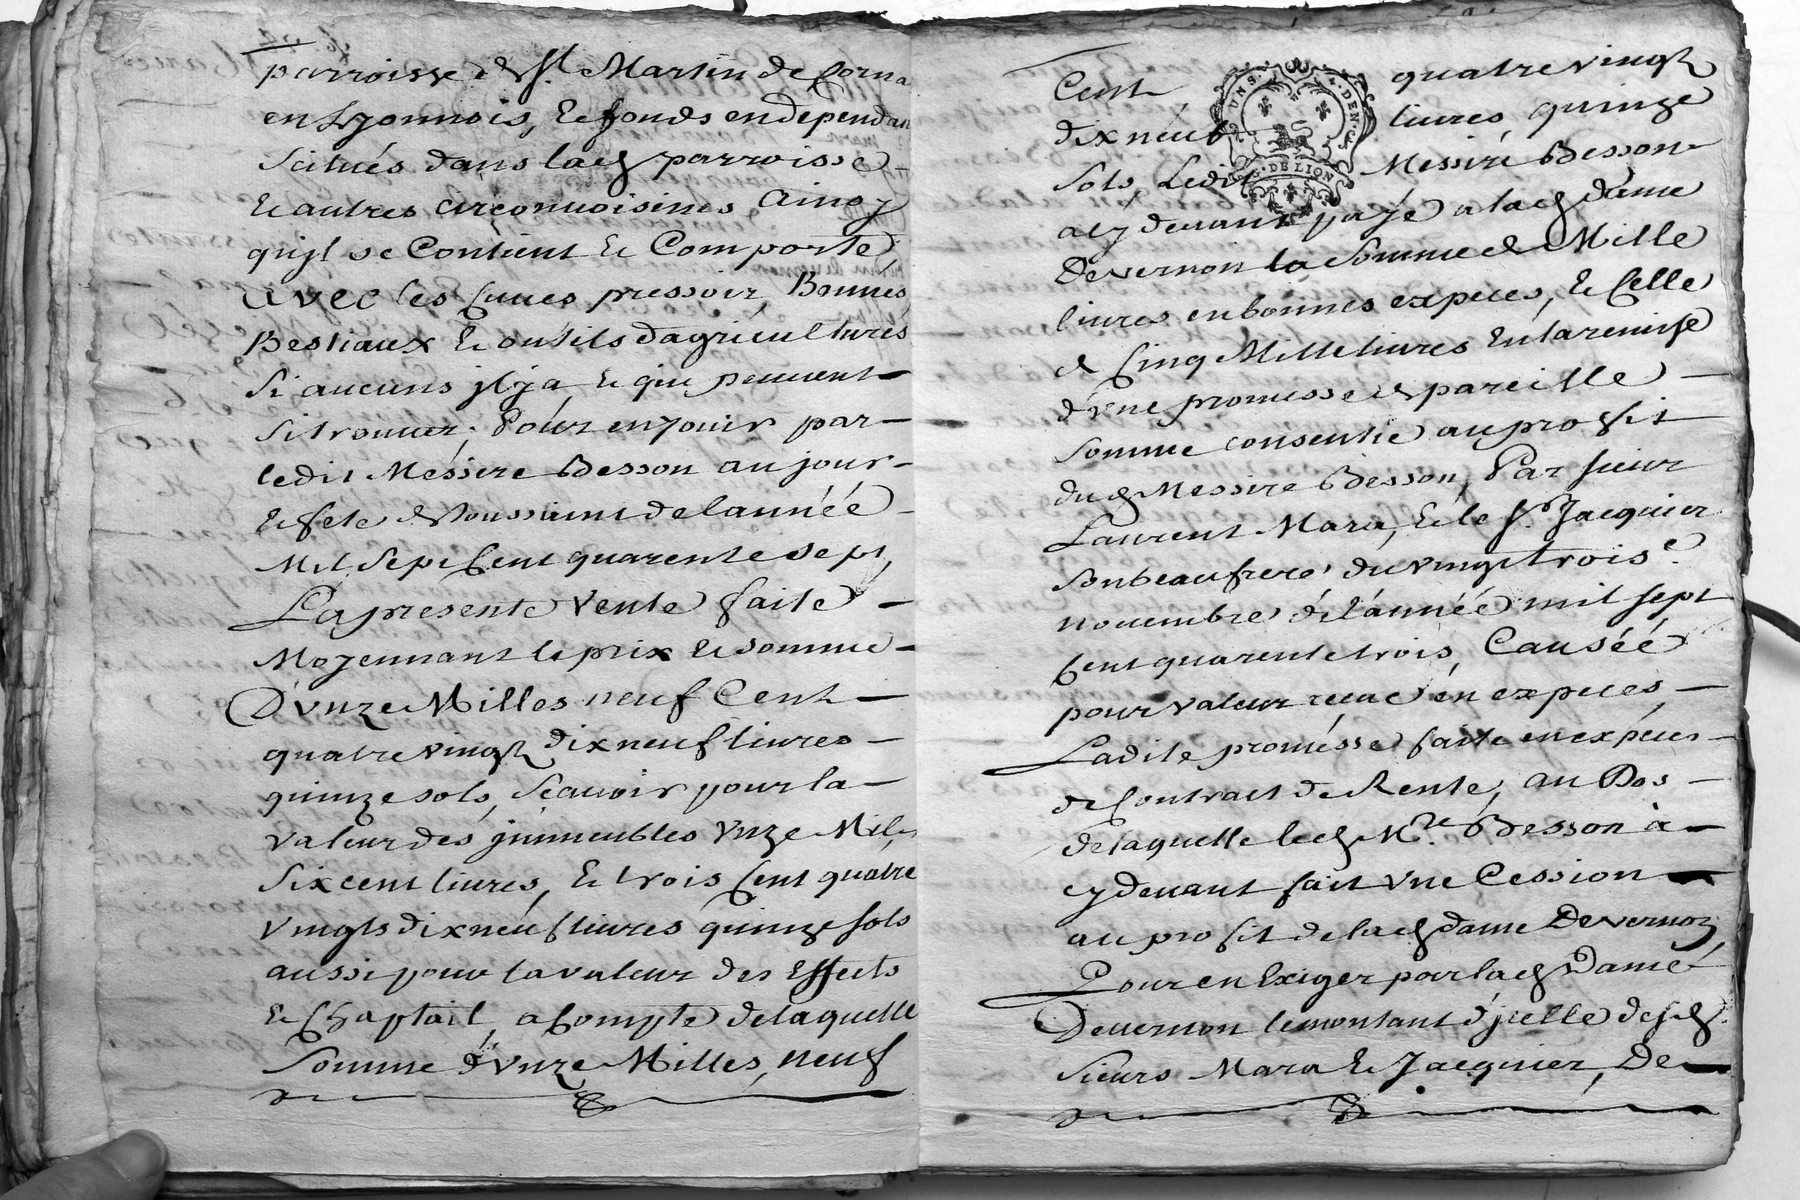 parroisse de St Martin de Corna
en Lyonnois, & fonds en dependan
scitués dans lad parroisse
& autres circonuoisines Ainsy
qu'jl se Contient & Comporte,
avec les Cuues pressoir, Bennes
Bestiaux & outils dagricultures
si aucuns jl ja & qui peuuent
si trouuer; Pour en jouir par
ledit Messire Besson au jour
& fete de Toussaint de lannéé
Mil sept Cent quarente sept,
La presente Vente faite
Moyennant le prix & somme
D'vnze Milles neuf Cent
quatre vingt dix neuf liures
quinze sols, scauoir pour la
valeur des jmmeubles vnze Mil
six cent liures, & trois Cent quatre
vingts dix neuf liures quinze sols
aussi pour la valeur des Effects
& Chaptail, a Compte de laquelle
somme d'vnze Milles, neuf
Cent quatre vingt
dix neuf liures quinze
sols, Ledit Messire Besson
a cy deuant payé a lad dame
Devernon la somme de Mille
liures en bonnes expeces, & Celle
de Cinq Mille liures En la remise
d'vne promesse de pareille
somme consentie au profit
dud Messire Besson, Par sieur
Laurent Mara, & le Sr Jacquier
son beau frere du vingt trois e
nouembre de l'annéé mil sept
Cent quarente trois, Causéé
pour valeur reçue en expeces,
Ladite promesse faite en expeces
de Contract de Rente, au Dos
de laquelle led Mre Besson à
cy deuant fait vne Cession
au profit de lad dame Devernon
Pour en Exiger par lad Dame
Deuernon le montant d'jcelle desd
sieurs Mara & Jacquier, De
UN. S. 4. DEN.
G. DE LION